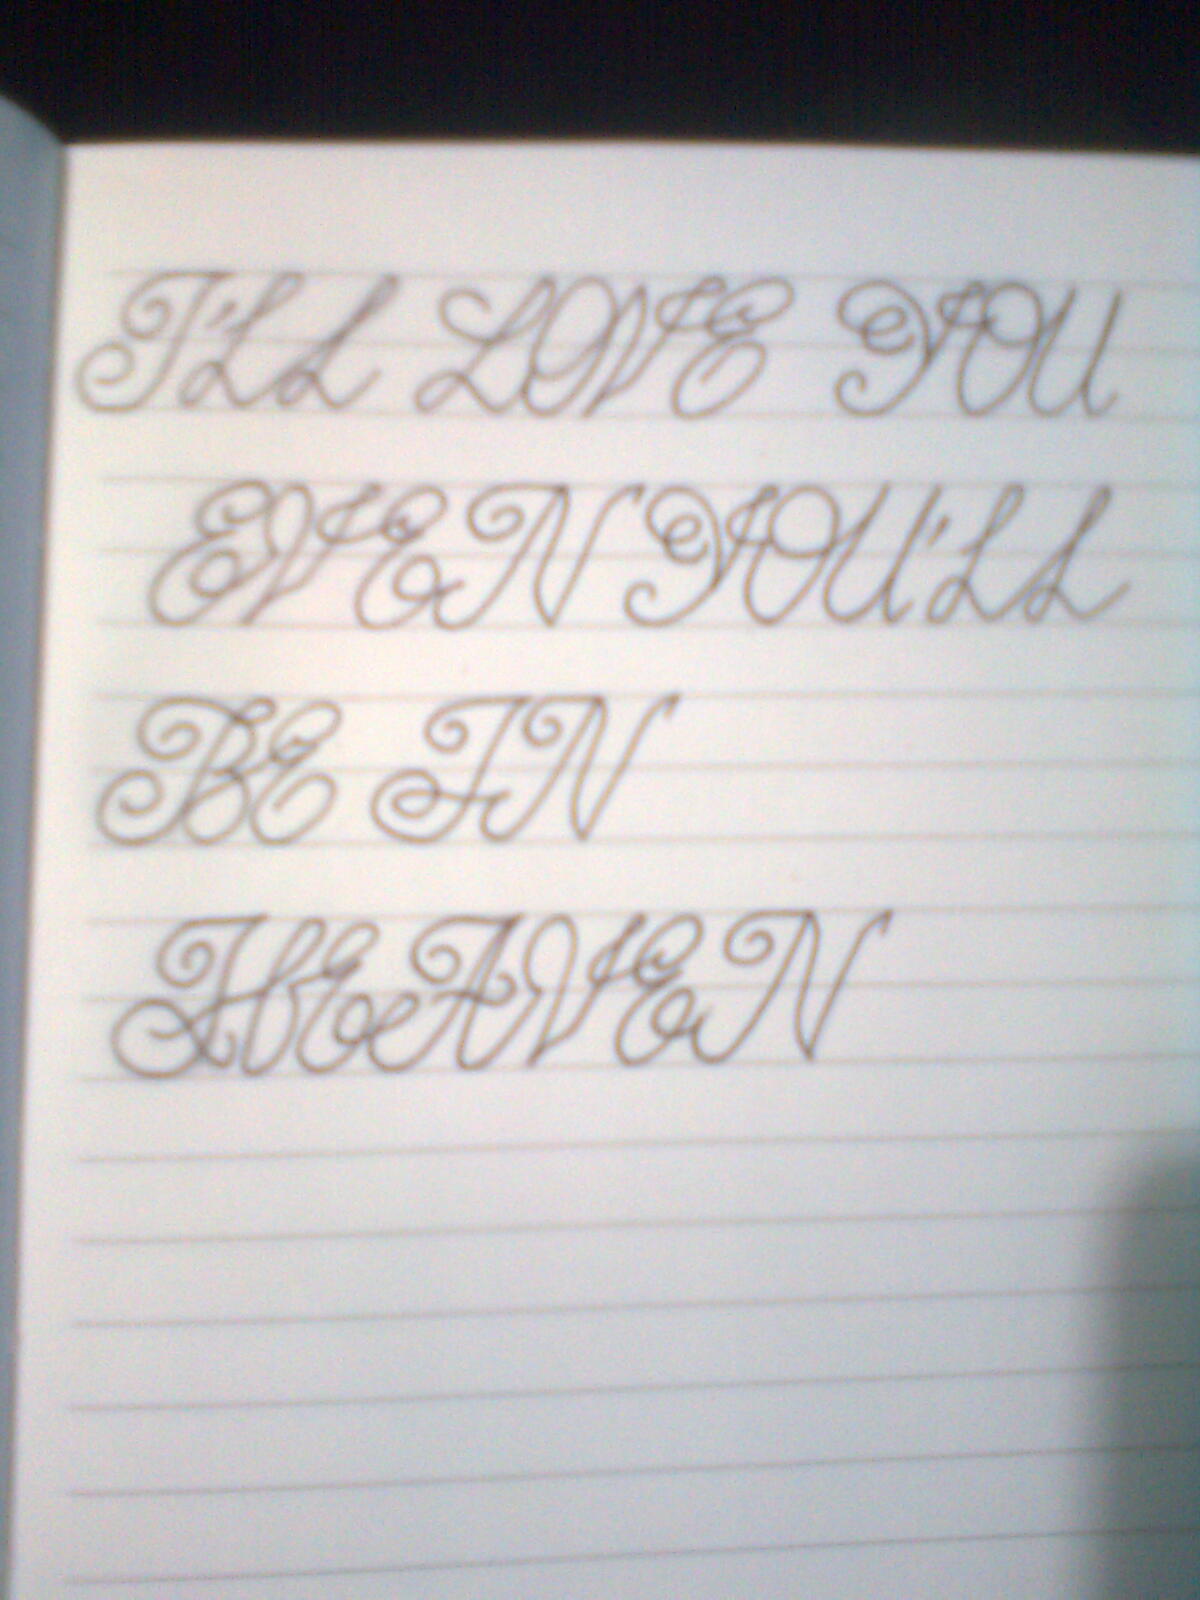 I'LL LOVE YOU
EVEN YOU'LL
BE IN
HEAVEN